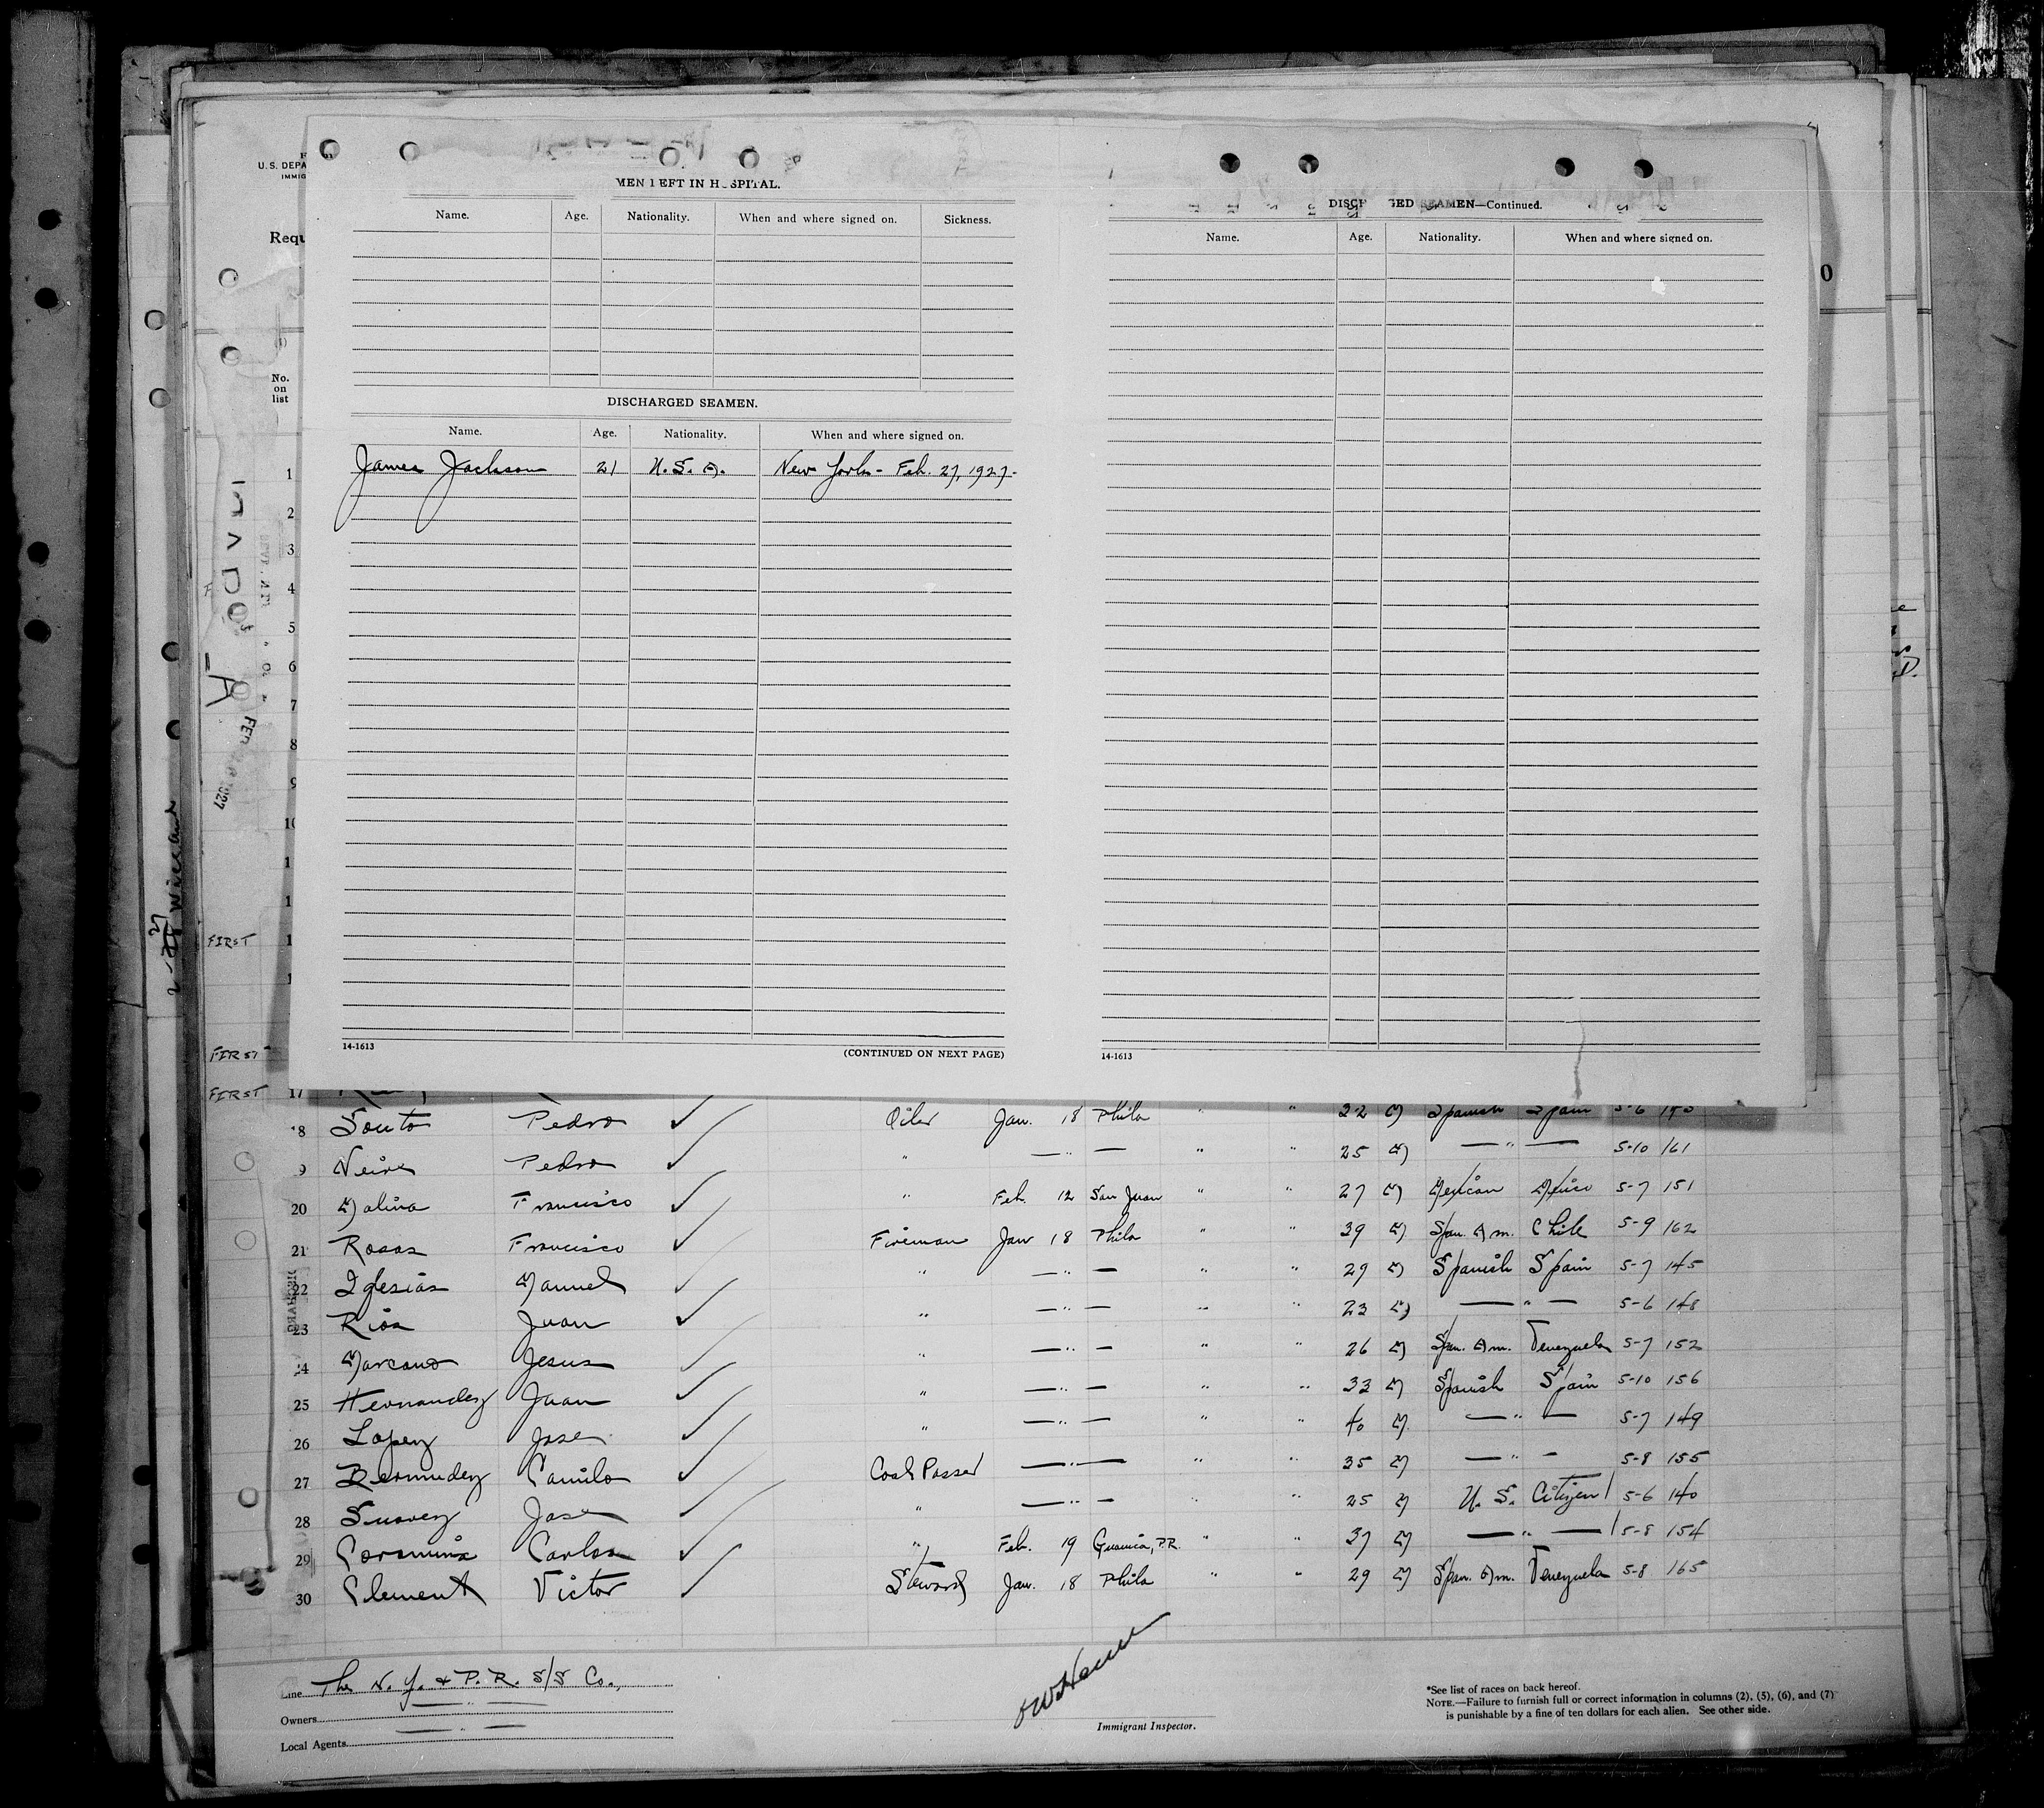 U.S. DEPA
IMMIG
Requ
No.
on
list
MEN LEFT IN HOSPITAL.
Name. Age. Nationality. When and where signed on. Sickness.
DISCHARGED SEAMEN.
Name. Age. Nationality. When and where signed on.
James Jackson 21 U.S.A. New York - Feb. 27, 1927-
14-1613 (CONTINUED ON NEXT PAGE)
DISCHARGED SEAMEN—Continued.
Name. Age. Nationality. When and where signed on.
14-1613
0
1
2
3
4
5
6
7
8
9
FIRST
FIRST
FIRST 17
18 Souto Pedro ✓ Oiler Jan. 18 Phila " " 22 M Spanish Spain 5-6
19 Neira Pedro ✓ " —"— " " 25 M —"— 5-10 161
20 Molina Francisco ✓ " Feb. 12 San Juan " " 27 M Mexican Mexico 5-7 151
21 Rosas Francisco ✓ Fireman Jan 18 Phila " " 39 M Span. Am. Chile 5-9 162
22 Iglesias Manuel ✓ " —"— " " 29 M Spanish Spain 5-7 145
23 Rios Juan ✓ " —"— " " 23 M —"— 5-6 148
24 Marcano Jesus ✓ " —"— " " 26 M Span. Am. Venezuela 5-7 152
25 Hernandez Juan ✓ " —"— " " 33 M Spanish Spain 5-10 156
26 Lopez Jose ✓ " —"— " " 40 M —"— 5-7 149
27 Bermudez Camilo ✓ Coal Passer —"— " " 35 M —"— 5-8 155
28 Suarez Jose ✓ " —"— " " 25 M U.S. Citizen 5-6 140
29 Carlos ✓ " Feb. 19 Guanica, P.R. " " 37 M —"— 5-8 154
30 Clement Victor ✓ Steward Jan. 18 Phila " " 29 M Span. Am. Venezuela 5-8 165
Line The N.Y. & P.R. S/S Co.,
Owners —"—
Local Agents —"—
Immigrant Inspector.
*See list of races on back hereof.
NOTE.—Failure to furnish full or correct information in columns (2), (5), (6), and (7)
is punishable by a fine of ten dollars for each alien. See other side.